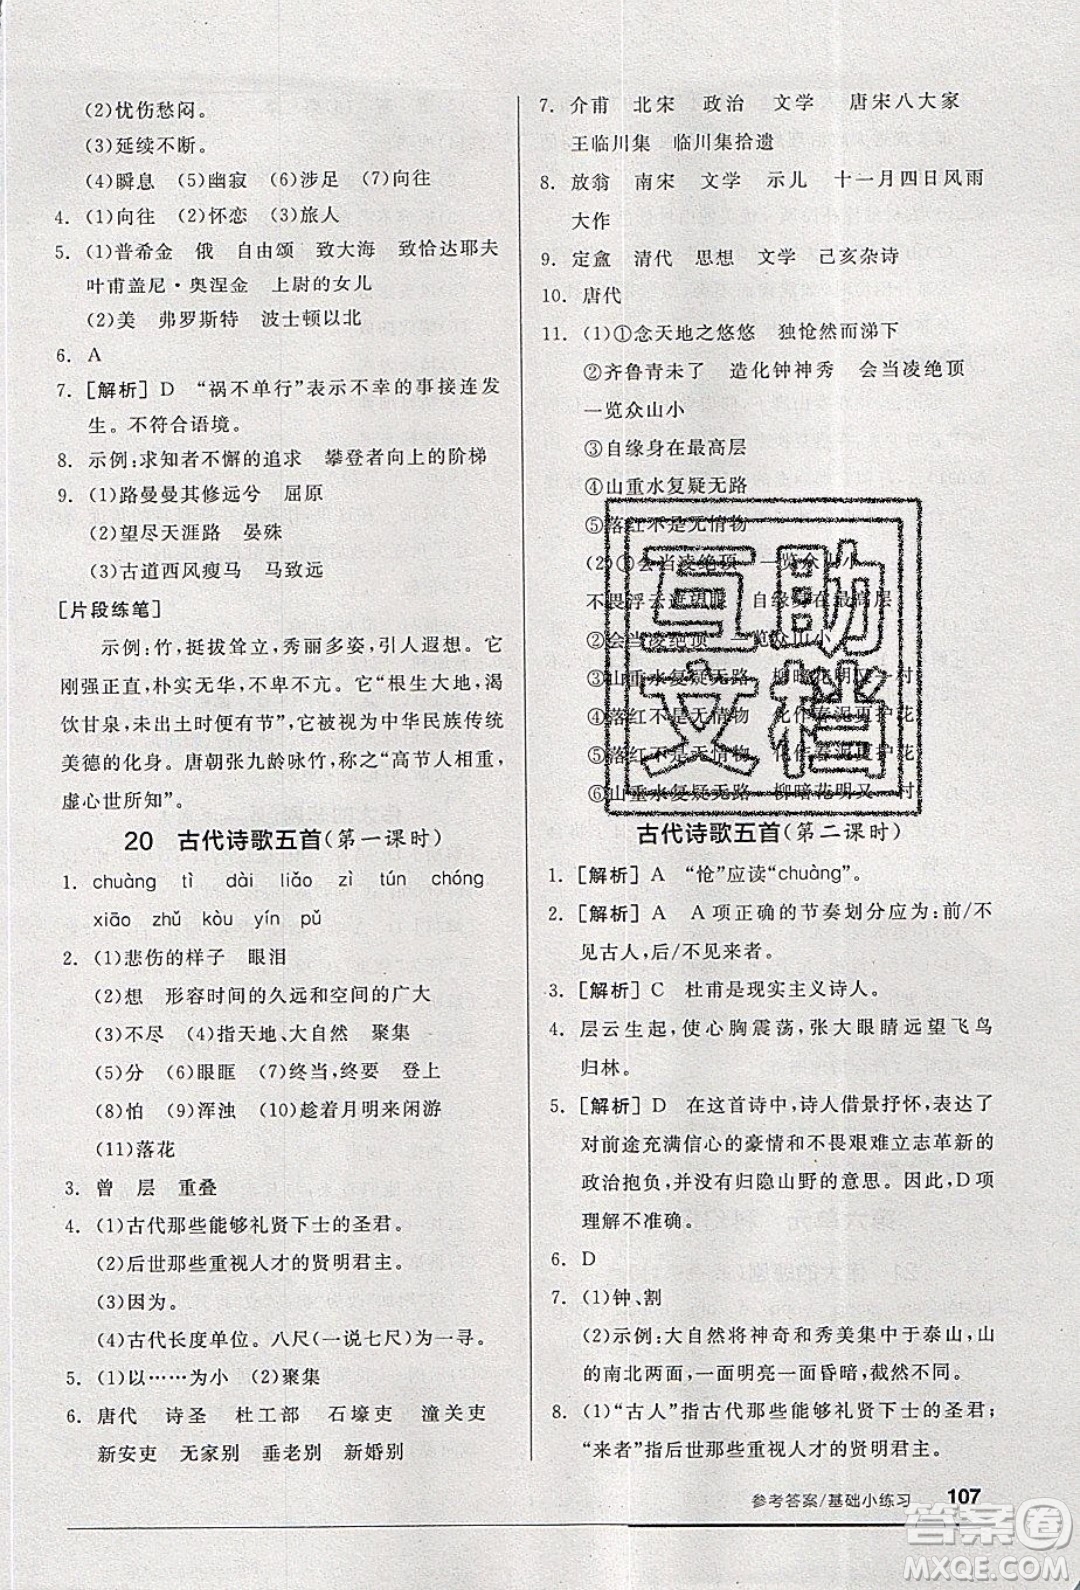 (2)忧伤愁闷。
(3)延续不断。
(4)瞬息 (5)幽寂 (6)涉足 (7)向往
4. (1)向往 (2)怀恋 (3)旅人
5. (1)普希金 俄 自由颂 致大海 致恰达耶夫
叶甫盖尼·奥涅金 上尉的女儿
(2)美 弗罗斯特 波士顿以北
6. A
7. [解析] D “祸不单行”表示不幸的事接连发
生。不符合语境。
8. 示例:求知者不懈的追求 攀登者向上的阶梯
9. (1)路曼曼其修远兮 屈原
(2)望尽天涯路 晏殊
(3)古道西风瘦马 马致远
[片段练笔]
示例:竹,挺拔耸立,秀丽多姿,引人遐想。它
刚强正直,朴实无华,不卑不亢。它“根生大地,渴
饮甘泉,未出土时便有节”,它被视为中华民族传统
美德的化身。唐朝张九龄咏竹,称之“高节人相重,
虚心世所知”。
20 古代诗歌五首(第一课时)
1. chuàng tì dài liǎo zì tún chóng
xiāo zhǔ kòu yín pǔ
2. (1)悲伤的样子 眼泪
(2)想 形容时间的久远和空间的广大
(3)不尽 (4)指天地、大自然 聚集
(5)分 (6)眼眶 (7)终当,终要 登上
(8)怕 (9)浑浊 (10)趁着月明来闲游
(11)落花
3. 曾 层 重叠
4. (1)古代那些能够礼贤下士的圣君。
(2)后世那些重视人才的贤明君主。
(3)因为。
(4)古代长度单位。八尺(一说七尺)为一寻。
5. (1)以……为小 (2)聚集
6. 唐代 诗圣 杜工部 石壕吏 潼关吏
新安吏 无家别 垂老别 新婚别
7. 介甫 北宋 政治 文学 唐宋八大家
王临川集 临川集拾遗
8. 放翁 南宋 文学 示儿 十一月四日风雨
大作
9. 定盦 清代 思想 文学 己亥杂诗
10. 唐代
11. (1)①念天地之悠悠 独怆然而涕下
②齐鲁青未了 造化钟神秀 会当凌绝顶
一览众山小
③自缘身在最高层
④山重水复疑无路
⑤落红不是无情物
(2)①会当凌绝顶 一览众山小
不畏浮云遮望眼 自缘身在最高层
②会当凌绝顶 一览众山小
③山重水复疑无路 柳暗花明又一村
④落红不是无情物 化作春泥更护花
⑤落红不是无情物 化作春泥更护花
⑥山重水复疑无路 柳暗花明又一村
互助
文档
古代诗歌五首(第二课时)
1. [解析] A “怆”应读“chuàng”。
2. [解析] A A项正确的节奏划分应为:前/不
见古人,后/不见来者。
3. [解析] C 杜甫是现实主义诗人。
4. 层云生起,使心胸震荡,张大眼睛远望飞鸟
归林。
5. [解析] D 在这首诗中,诗人借景抒怀,表达了
对前途充满信心的豪情和不畏艰难立志革新的
政治抱负,并没有归隐山野的意思。因此,D项
理解不准确。
6. D
7. (1)钟、割
(2)示例:大自然将神奇和秀美集中于泰山,山
的南北两面,一面明亮一面昏暗,截然不同。
8. (1)“古人”指古代那些能够礼贤下士的圣君;
“来者”指后世那些重视人才的贤明君主。
参考答案/基础小练习 107
答案圈
MXQE.COM